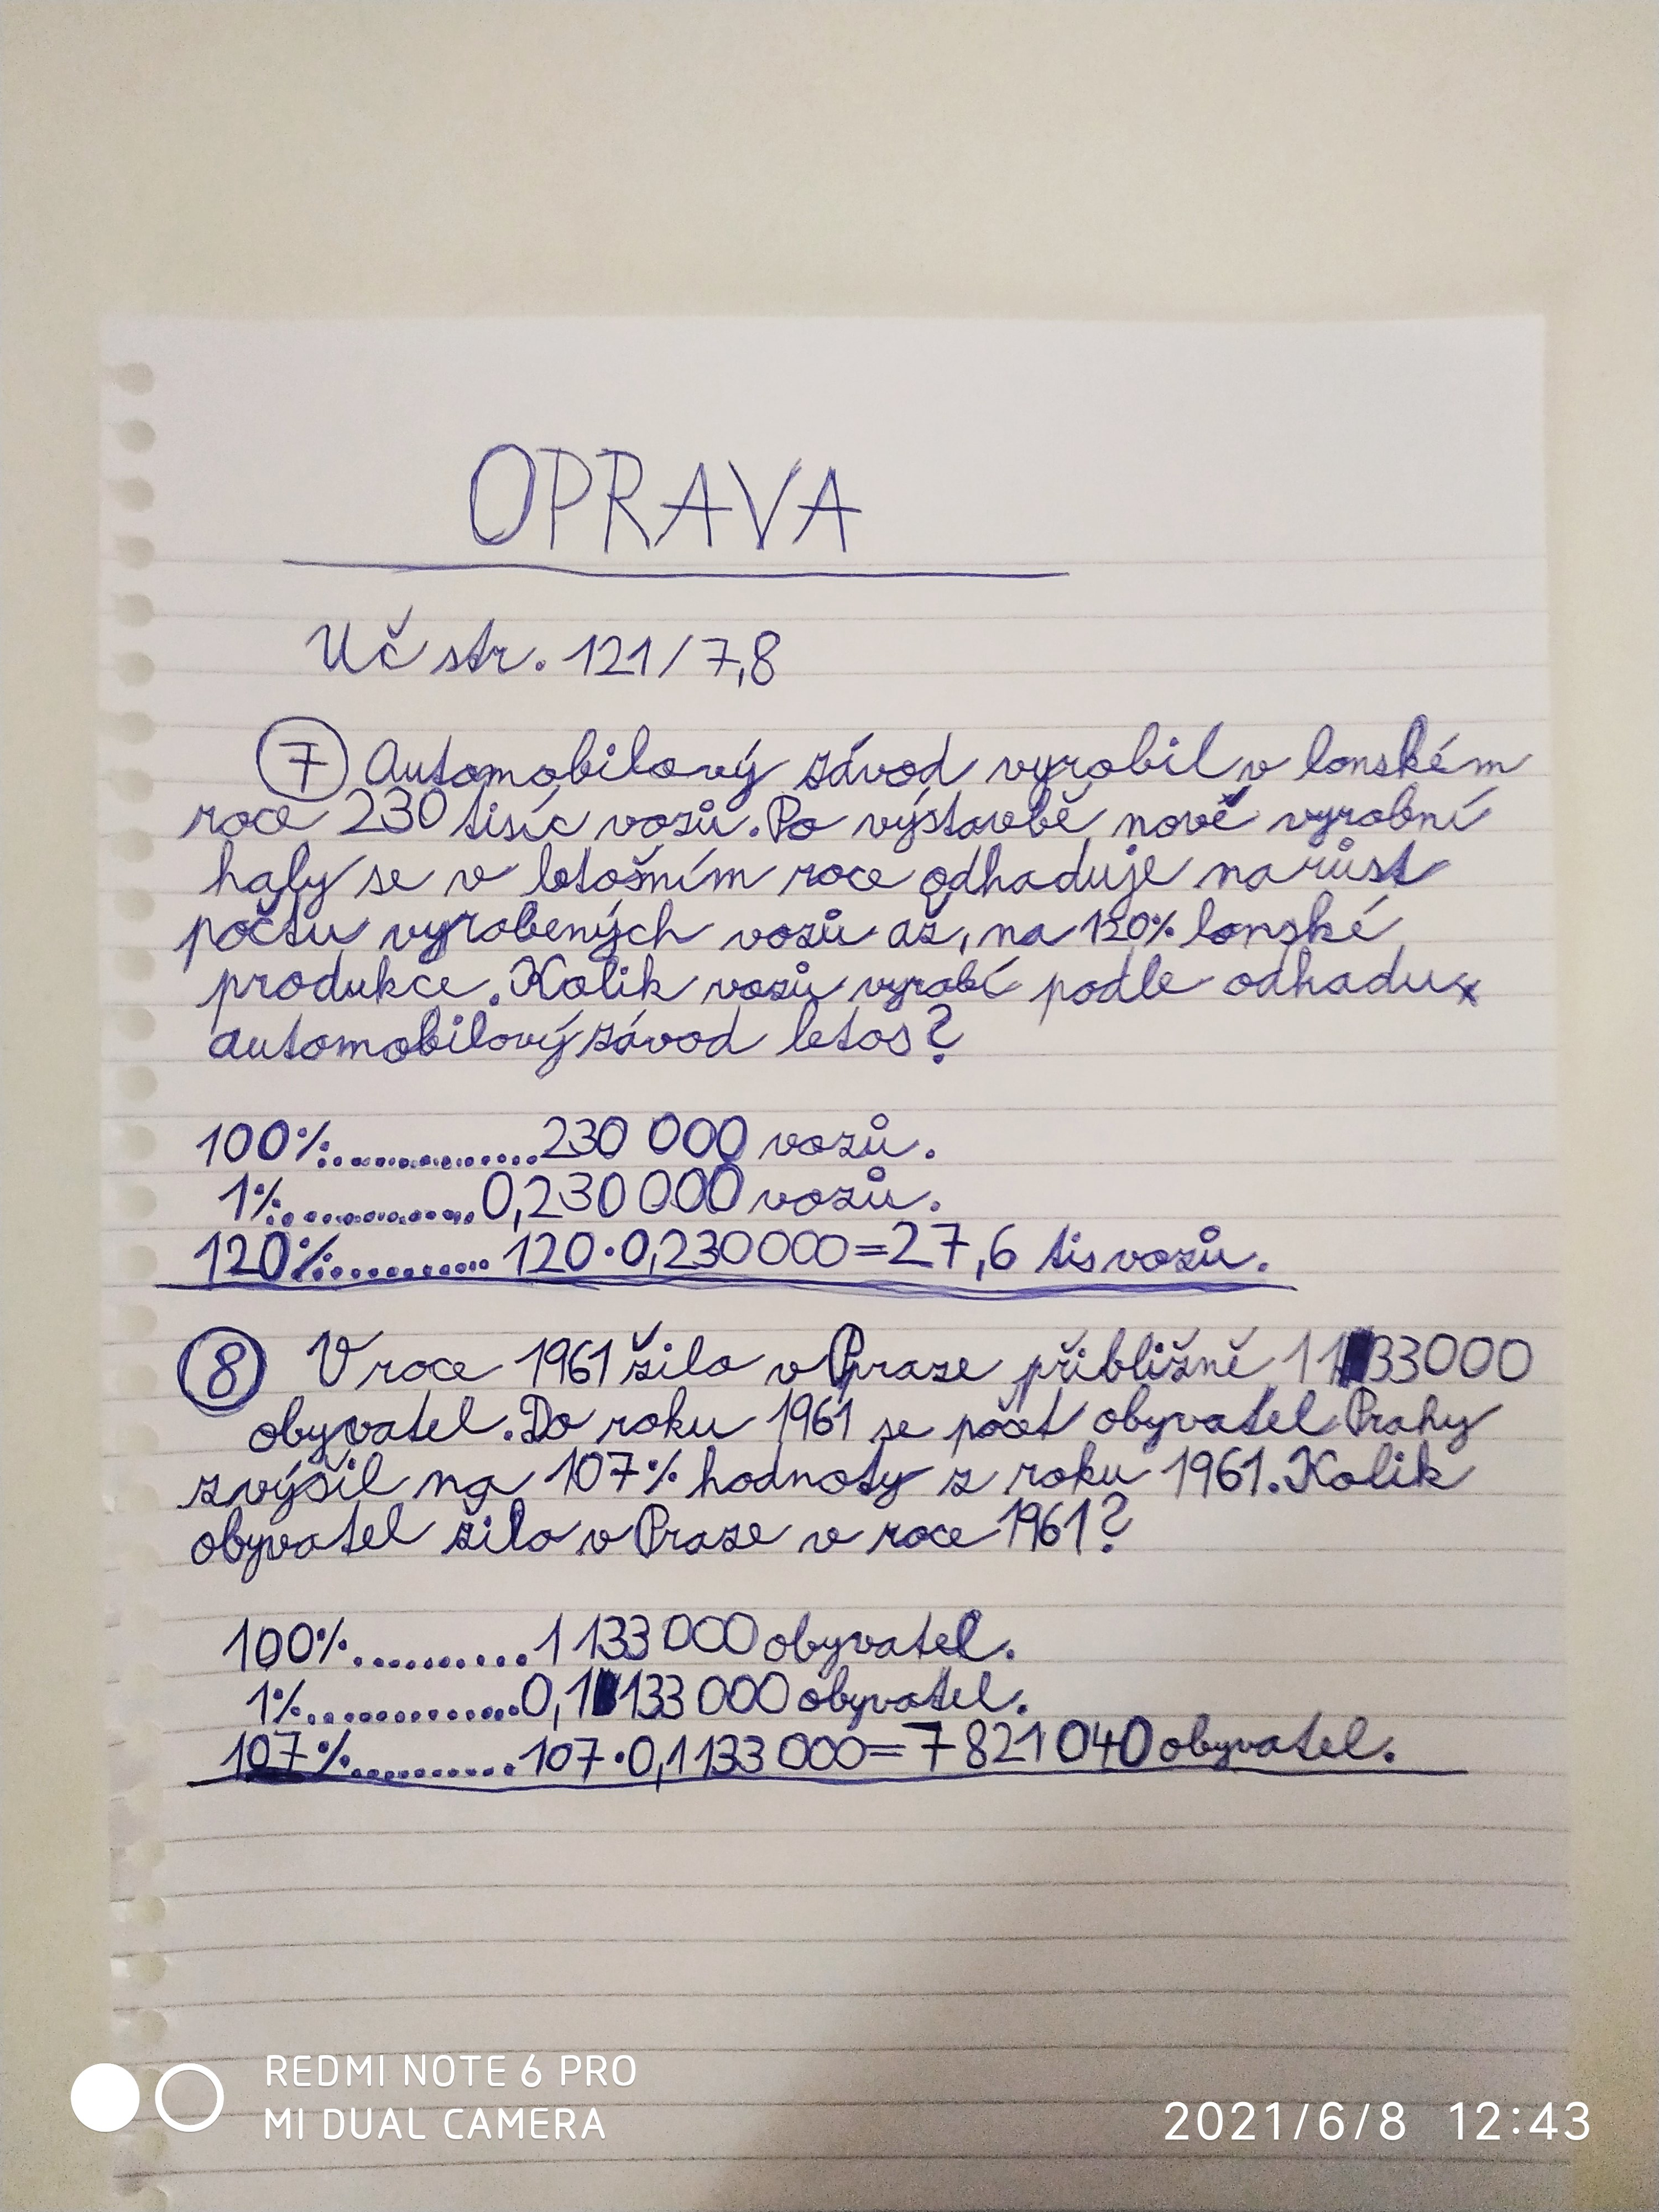 OPRAVA
Uč str. 121/7,8
7 Automobilový závod vyrobil v lonském
roce 230 tisíc vozů. Po výstavbě nově vyrobní
haly se v letošním roce odhaduje narůst
počtu vyrobených vozů až, na 120% lonské
produkce. Kolik vozů vyrobí podle odhadu
automobilový závod letos?
100%...............230 000 vozů.
1%...............0,230 000 vozů.
120%............120·0,230000=27,6 tis vozů.
8 V roce 1961 žilo v Praze přibližně 1133000
obyvatel. Do roku 1961 se počet obyvatel Prahy
zvýšil na 107% hodnoty z roku 1961. Kolik
obyvatel žilo v Praze v roce 1961?
100%...........1 133 000 obyvatel.
1%...............0,1133 000 obyvatel.
107%...........107·0,1133 000=7 821 040 obyvatel.
REDMI NOTE 6 PRO
MI DUAL CAMERA
2021/6/8 12:43